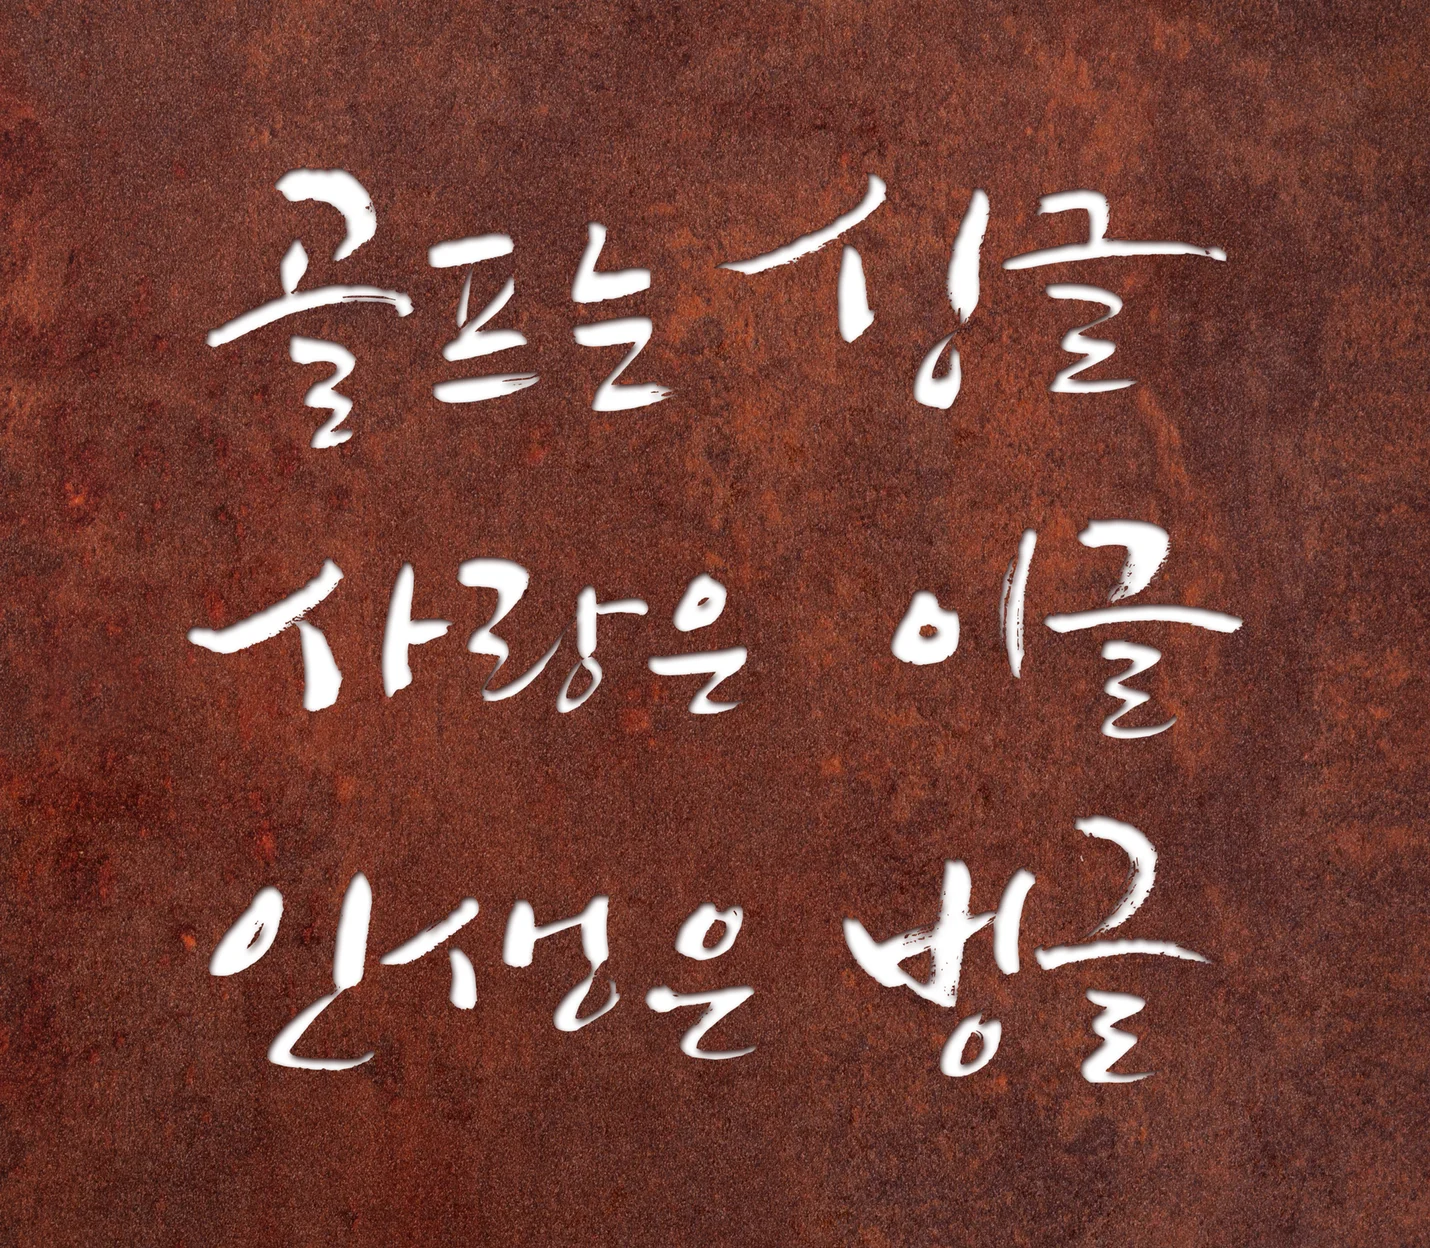 골프는 싱글
사랑은 이글
인생은 벙글